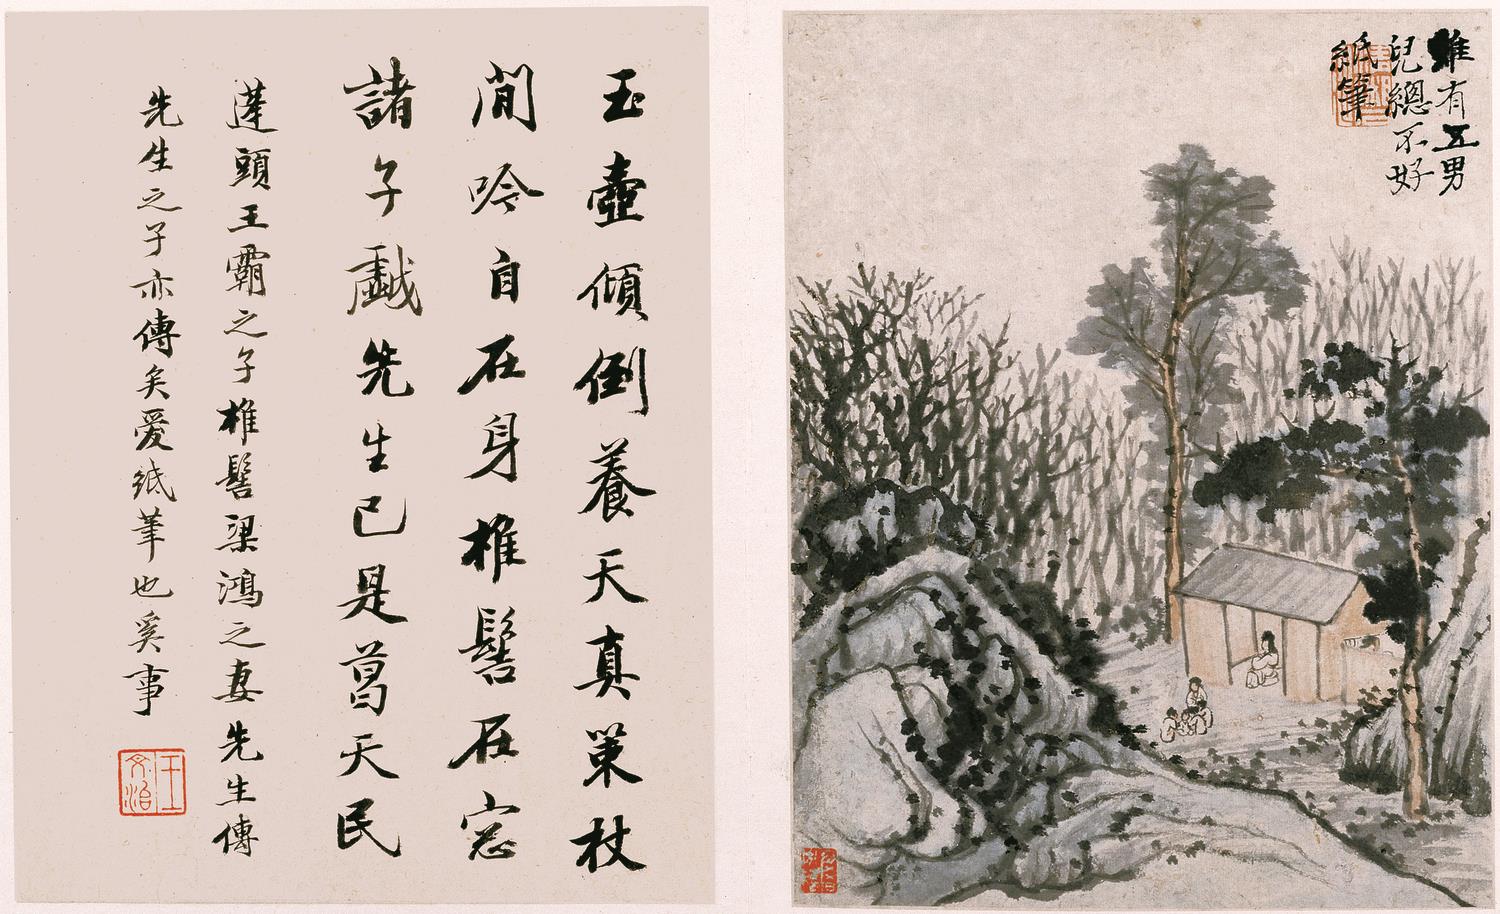 雖有五男
兒總不好
紙筆
玉壺傾倒養天真策杖
閒吟自在身椎髻在窓
諸子戯先生已是葛天民
蓬頭王霸之子椎髻梁鴻之妻先生傳
先生之子亦傳矣愛紙筆也奚事
王文治